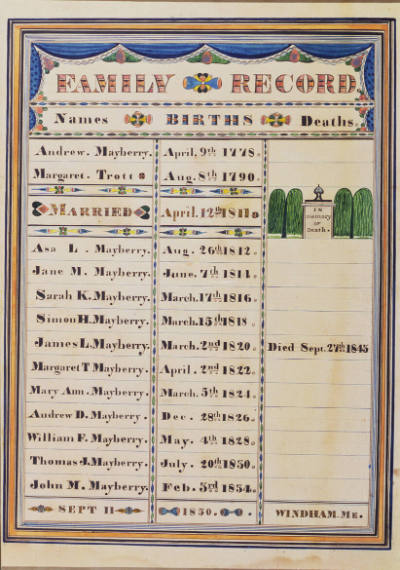 FAMILY RECORD
Names BIRTHS Deaths.
Andrew. Mayberry. April. 9th 1778.
Margaret. Trott Aug. 8th 1790.
MARRIED April. 12th 1811.
IN
memory
of
Death.
Asa L. Mayberry. Aug. 26th 1812.
Jane M. Mayberry. June. 7th 1814.
Sarah K. Mayberry. March. 17th 1816.
Simon H. Mayberry. March. 15th 1818.
James L. Mayberry. March. 2nd 1820. Died Sept. 27th 1845
Margaret T Mayberry. April. 2nd 1822.
Mary Ann. Mayberry. March. 5th 1824.
Andrew D. Mayberry. Dec. 28th 1826.
William F. Mayberry. May. 4th 1828.
Thomas J. Mayberry. July. 20th 1830.
John M. Mayberry. Feb. 3rd 1834.
SEPT 11 1830. WINDHAM. ME.